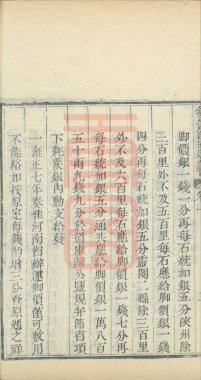 脚價銀一錢一分再每石統加銀五分陝州除
三百里外不及五百里每石應給脚價銀一錢
四分再每石統加銀五分靈閿二縣除三百里
外不及六百里每石應給脚價銀一錢七分再
每石統加銀五分通共應給脚價銀一萬八百
五十兩九錢九分於道庫歸公鹽規并節省項
下耗羡銀內動支給發
一雍正七年奏准河南省辦運脚價僅可敷用
不能裕如按原定每錢酌增三分看原題之雜